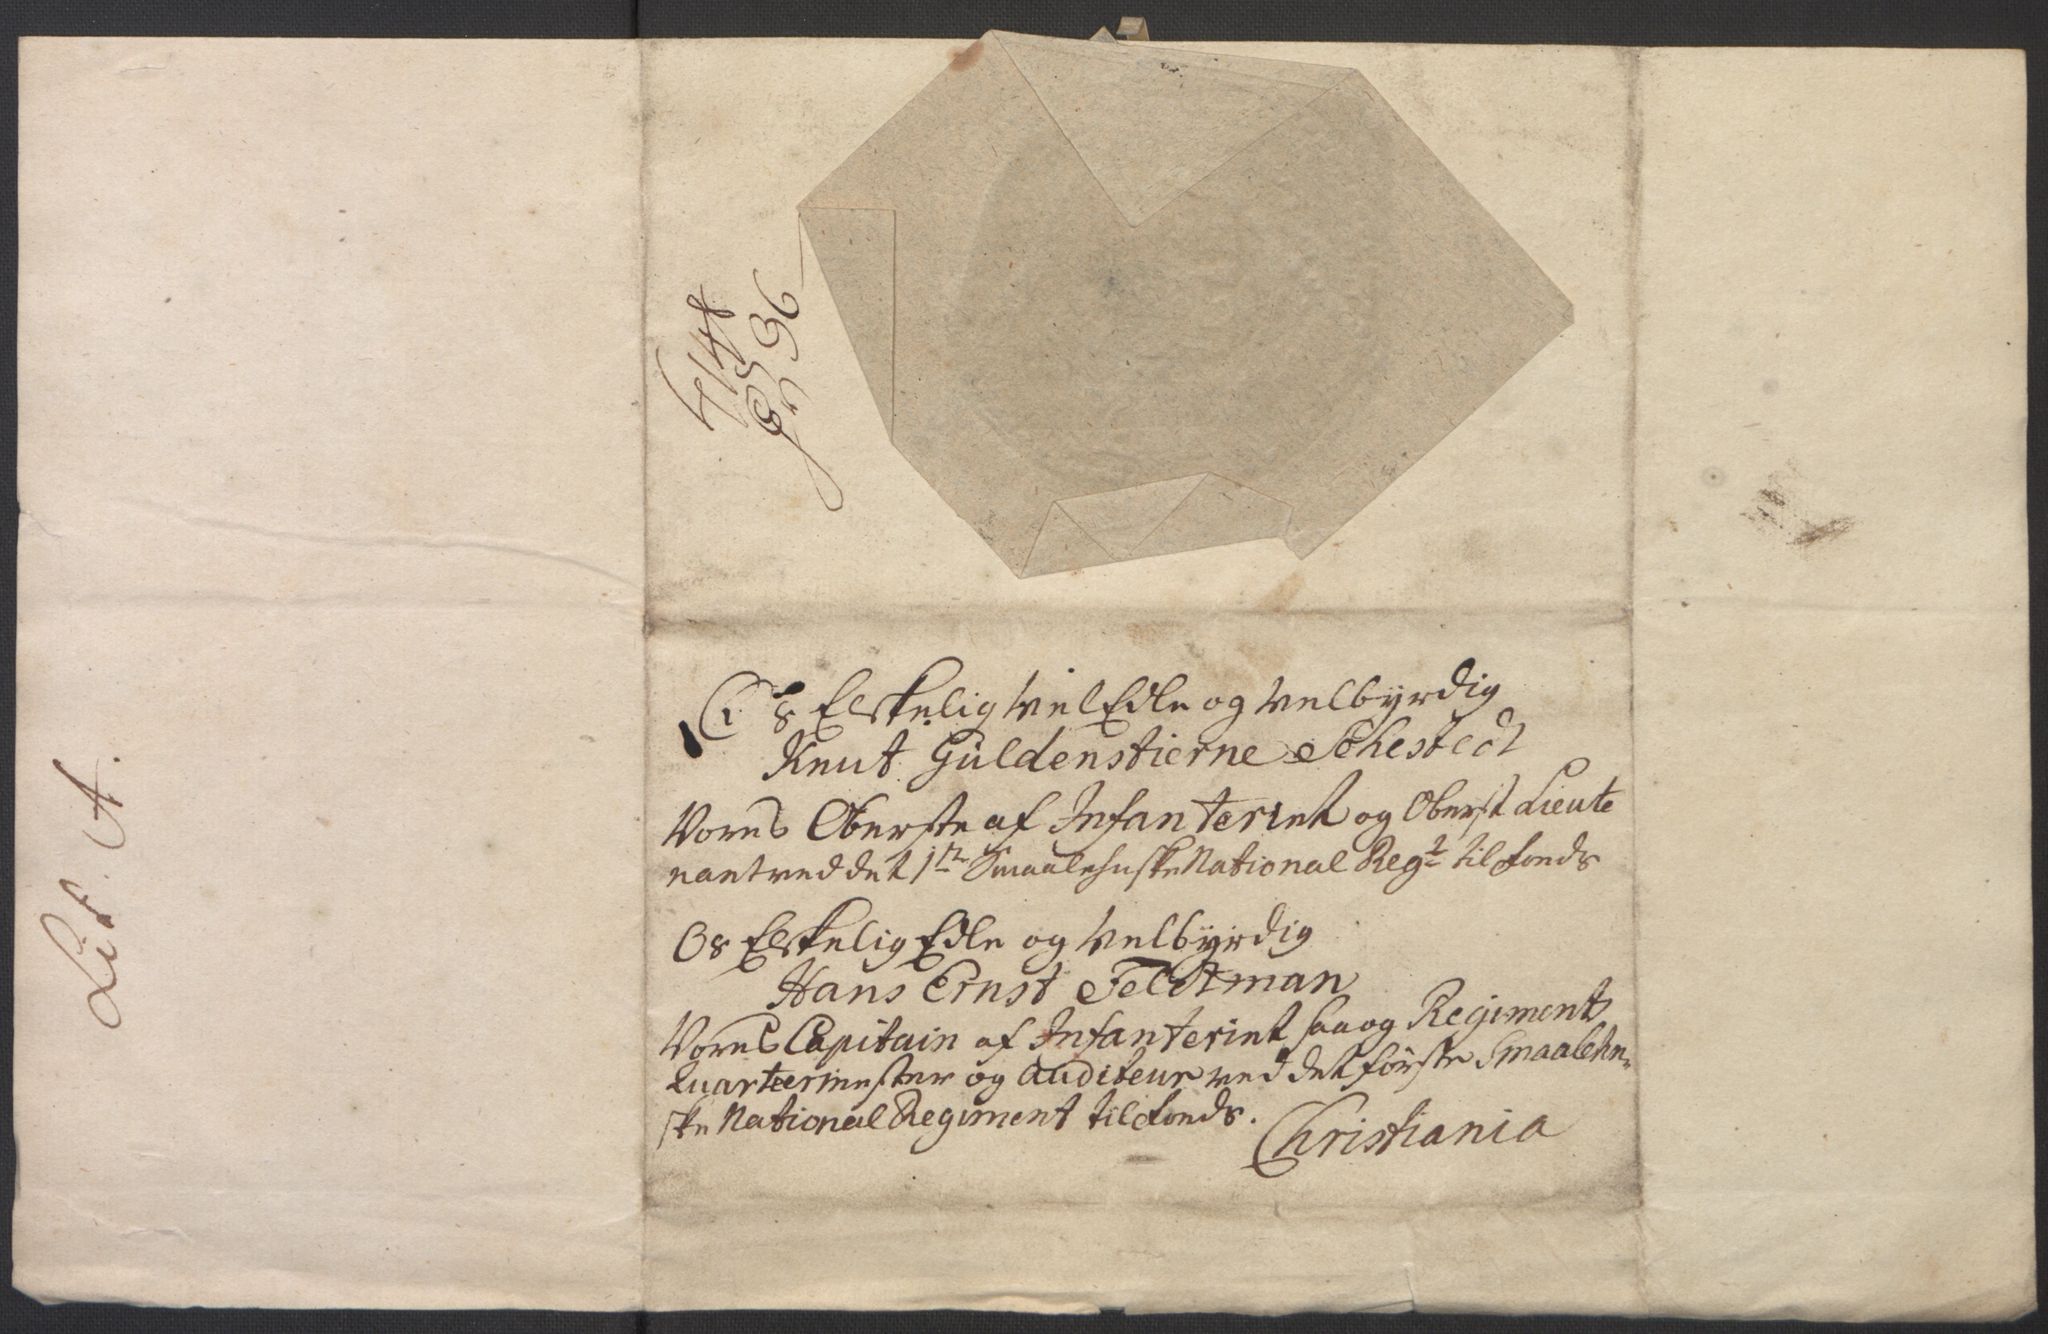 Lit. A.
Os Elskelig Vel Edle og Velbyrdig
Knut Güldenstierne Sehestedt
Vores Oberste af Infanteriet og Oberst Lieute
nant ved det 1te Smaalehnske National Regt til fonds
Os Elskelig Edle og Velbyrdig
Hans Ernst Feldtman
Vores Capitain af Infanteriet saa og Regiments
Quarteermester og Auditeur ved det förste Smaalehn-
ske National Regiment til fonds.
Christiania